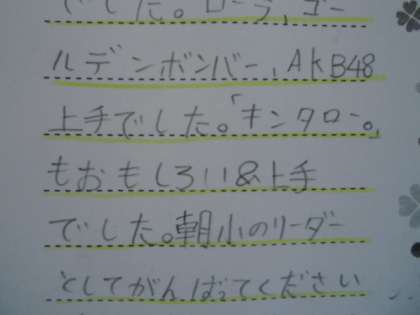 でした。ローラ,ゴー
ルデンボンバー,AKB48
上手でした。「キンタロー。」
もおもしろい&上手
でした。朝小のリーダー
としてがんばってください